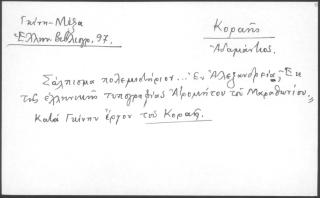 Γκίνη-Μέξα
Ἑλλην. βιβλιογρ. 97.
Κοραῆς
Ἀδαμάντιος.
Σάλπισμα πολεμιστήριον... Ἐν Ἀλεξανδρείᾳ, Ἐκ
τῆς ἑλληνικῆς τυπογραφίας Ἀτρομήτου τοῦ Μαραθωνίου.
Κατά Γκίνην ἔργον τοῦ Κοραῆ.